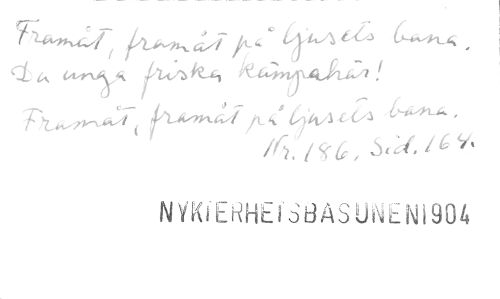 Framåt, framåt på ljusets bana.
Du unga friska kämpahär!
Framåt, framåt på ljusets bana.
Nr. 186. Sid. 164.
NYKTERHETSBASUNEN 1904